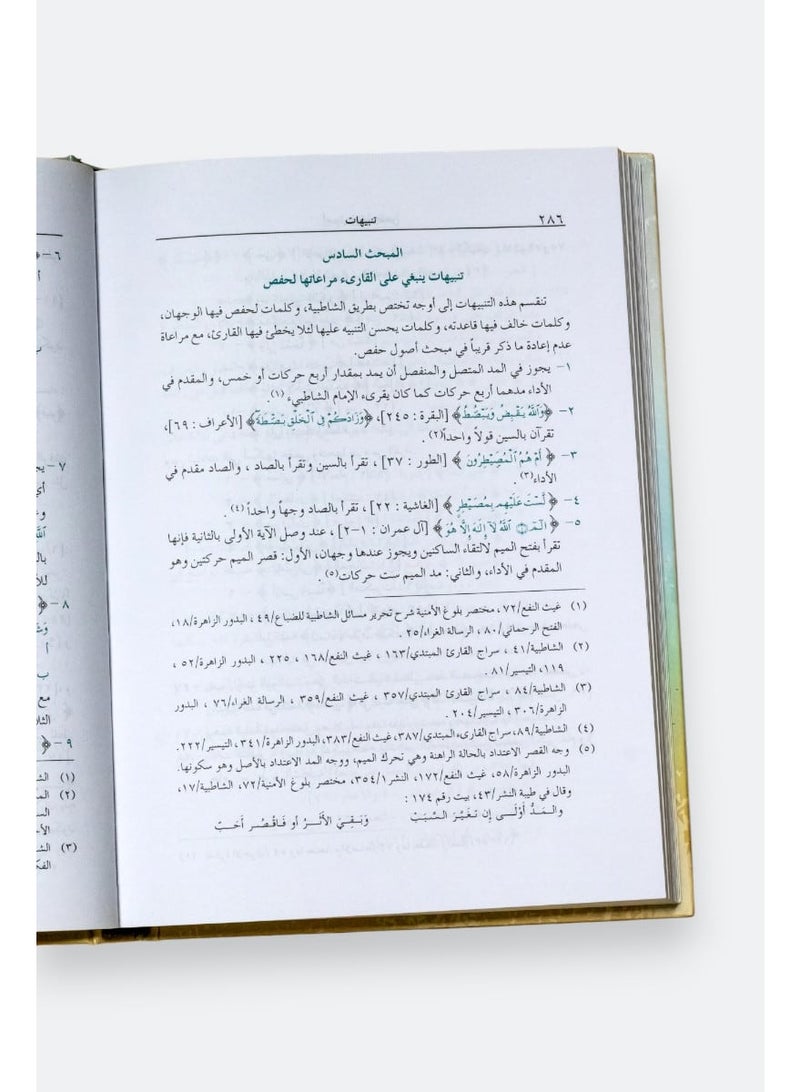 ٢٨٦ تنبيهات
المبحث السادس
تنبيهات ينبغي على القارىء مراعاتها لحفص
تنقسم هذه التنبيهات إلى أوجه تختص بطريق الشاطبية، وكلمات لحفص فيها الوجهان،
وكلمات خالف فيها قاعدته، وكلمات يحسن التنبيه عليها لئلا يخطئ فيها القارئ، مع مراعاة
عدم إعادة ما ذكر قريباً في مبحث أصول حفص.
١- يجوز في المد المتصل والمنفصل أن يمد بمقدار أربع حركات أو خمس، والمقدم في
الأداء مدهما أربع حركات كما كان يقرىء الإمام الشاطبي، (١).
٢- ﴿وَاللَّهُ يَقْبِضُ وَيَبْصُطُ﴾ [البقرة : ٢٤٥]، ﴿وَزَادَكُمْ فِي الْخَلْقِ بَصْطَةً﴾ [الأعراف : ٦٩]،
تقرآن بالسين قولاً واحداً(٢) .
٣- ﴿ أَمْ هُمُ الْمُصَيْطِرُونَ ﴾ [الطور : ٣٧] ، تقرأ بالسين وتقرأ بالصاد ، والصاد مقدم في
الأداء(٣) .
٤- ﴿ لَسْتَ عَلَيْهِم بِمُصَيْطِرٍ ﴾ [الغاشية : ٢٢] ، تقرأ بالصاد وجهاً واحداً (٤) .
٥- ﴿ الم ١ اللَّهُ لَا إِلَهَ إِلَّا هُوَ ﴾ [آل عمران : ١-٢] ، عند وصل الآية الأولى بالثانية فإنها
تقرأ بفتح الميم لالتقاء الساكنين ويجوز عندها وجهان، الأول: قصر الميم حركتين وهو
المقدم في الأداء، والثاني: مد الميم ست حركات(٥) .
(١) غيث النفع/٧٢ ، مختصر بلوغ الأمنية شرح تحرير مسائل الشاطبية للضباع/٤٩ ، البدور الزاهرة/١٨،
الفتح الرحماني/٨٠ ، الرسالة الغراء/٢٥ .
(٢) الشاطبية/٤١ ، سراج القارئ المبتدي/١٦٣ ، غيث النفع/١٦٨ ، ٢٢٥ ، البدور الزاهرة/٥٢ ،
١١٩، التيسير/٨١ .
(٣) الشاطبية/٨٤ ، سراج القارئ المبتدي/٣٥٧ ، غيث النفع/٣٥٩ ، الرسالة الغراء/٧٦ ، البدور
الزاهرة/٣٠٦ ، التيسير/٢٠٤ .
(٤) الشاطبية/٨٩، سراج القارىء المبتدي/٣٨٧، غيث النفع/٣٨٣، البدور الزاهرة/٣٤١، التيسير/٢٢٢.
(٥) وجه القصر الاعتداد بالحالة الراهنة وهي تحرك الميم، ووجه المد الاعتداد بالأصل وهو سكونها.
البدور الزاهرة/٥٨، غيث النفع/١٧٢، النشر٣٥٤/١، مختصر بلوغ الأمنية/٧٢، الشاطبية/١٧،
وقال في طيبة النشر/٤٣، بيت رقم ١٧٤ :
والمَدُّ أَوْلَى إن تَغَيَّرَ السَّبَبْ وَبَقِيَ الأَثَرُ أو فَاقْصُر أَحَبّ
٦-
٧- يج
أي
وع
الله
بال
للأ
٨- ﴿
وَ
أ
ب
مع
الثلا
٩- ﴿
(١) الش
(٢) الم
الس
الأح
(٣) الش
الفك